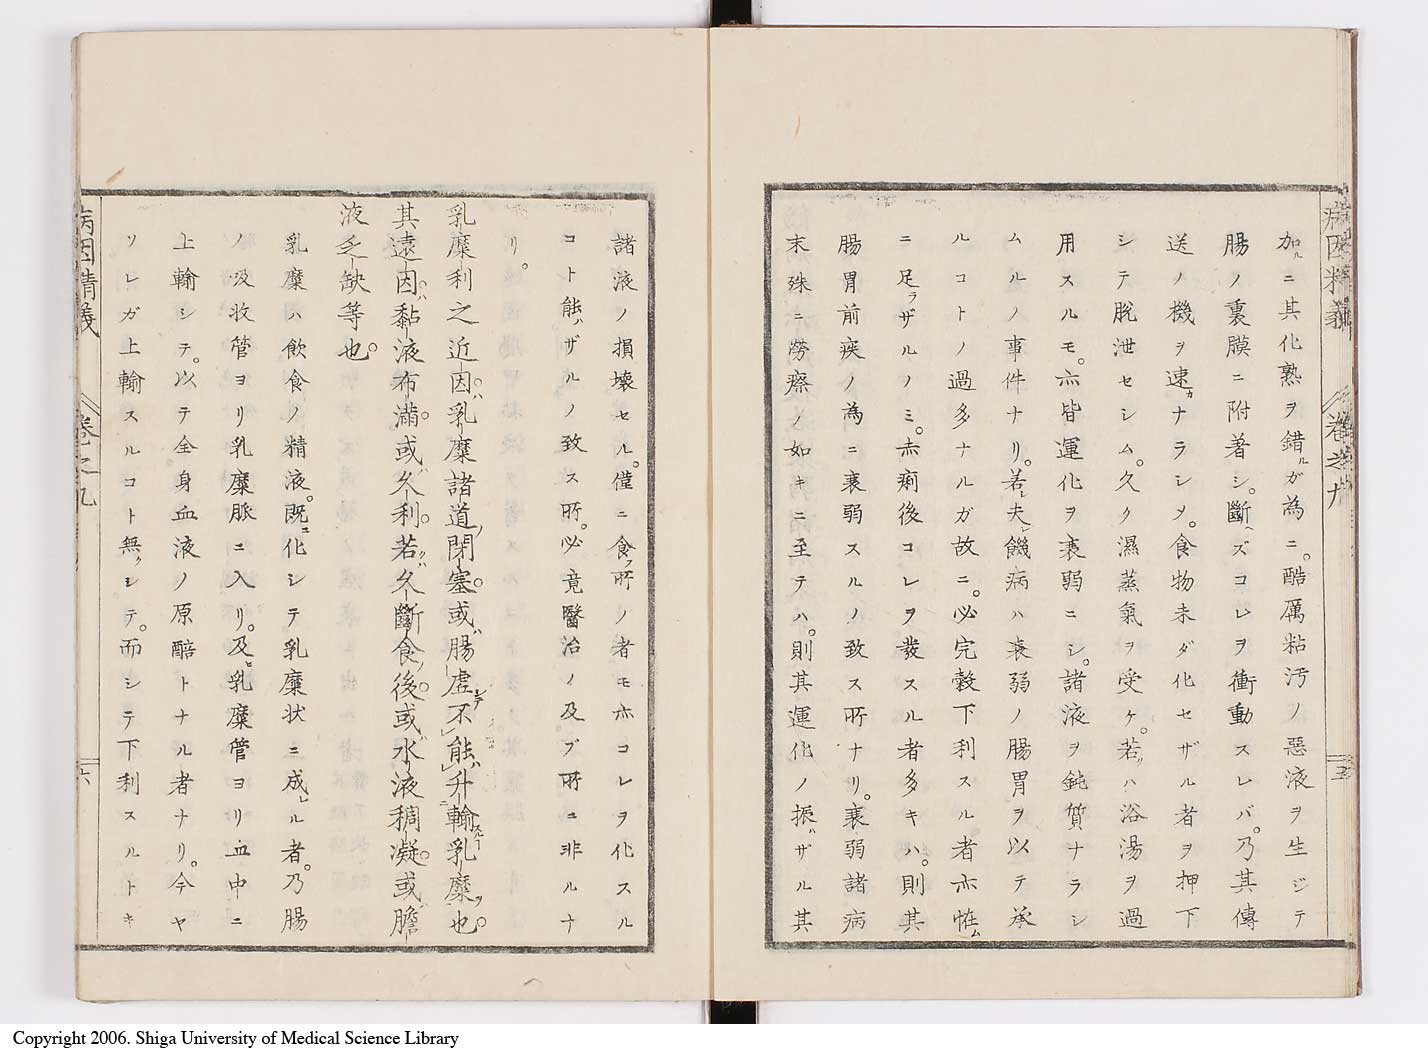 病因精義 卷之九 五
加ルニ其化熟ヲ錯ルガ為ニ。酷厲粘汚ノ惡液ヲ生ジテ
腸ノ裏膜ニ附著シ。斷ヘズコレヲ衝動スレバ。乃其傳
送ノ機ヲ速カナラシメ。食物未ダ化セザル者ヲ押下
シテ脫泄セシム。久ク濕蒸氣ヲ受ケ。若クハ浴湯ヲ過
用スルモ。亦皆運化ヲ衰弱ニシ。諸液ヲ鈍質ナラシ
ムルノ事件ナリ。若シ夫レ饑病ハ衰弱ノ腸胃ヲ以テ承
ルコトノ過多ナルガ故ニ。必完穀下利スル者亦恠ム
ニ足ラザルノミ。赤痢後コレヲ發スル者多キハ。則其
腸胃前疾ノ為ニ衰弱スルノ致ス所ナリ。衰弱諸病
末殊ニ勞瘵ノ如キニ至テハ。則其運化ノ振ハザル其
諸液ノ損壞セル。僅ニ食フ所ノ者モ亦コレヲ化スル
コト能ハザルノ致ス所。必竟醫治ノ及ブ所ニ非ルナ
リ。
乳糜利之近因ハ。乳糜諸道ノ閉塞。或ハ腸虛シテ不能升輸スルヿ乳糜ヲ也。
其遠因ハ。黏液布滿。或ハ久利。若クハ久斷食ノ後。或ハ水液稠凝。或ハ膽
液乏缺等也。
乳糜ハ飲食ノ精液。既ニ化シテ乳糜狀ニ成レル者。乃腸
ノ吸收管ヨリ乳糜脈ニ入リ。及ヒ乳糜管ヨリ血中ニ
上輸シテ。以テ全身血液ノ原醅トナル者ナリ。今ヤ
ソレガ上輸スルコト無フシテ。而シテ下利スルトキ
病因精義 卷之九 六